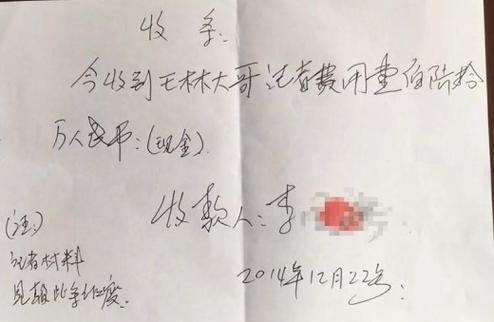 收 条:
今收到王林大哥记者费用壹佰陆拾
万人民币:(现金).
收款人:李
(注:)
记者材料
见报此条作废.
2014年12月22号: